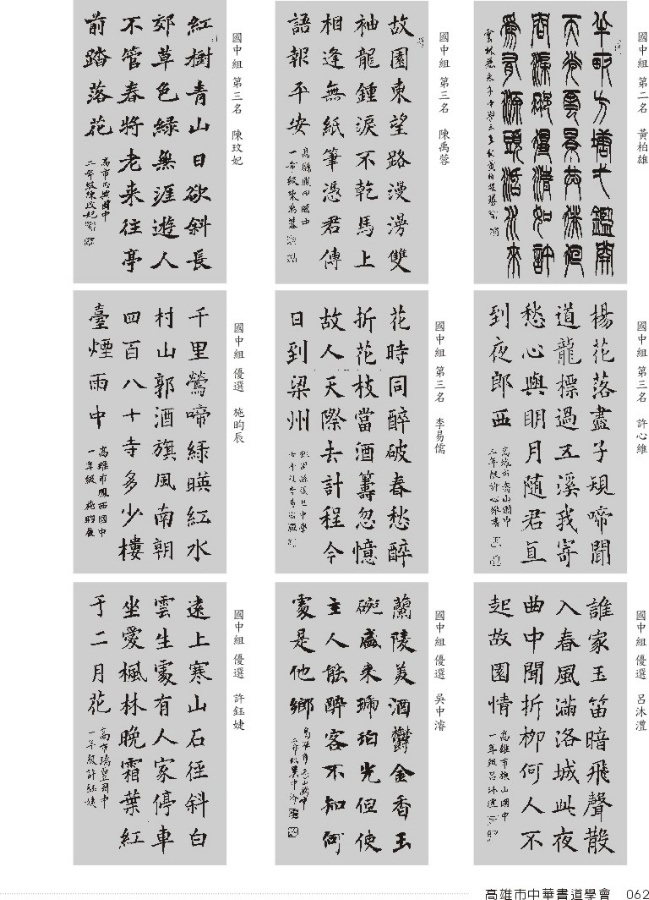 國中組 第二名 黃柏雄
半畝方塘一鑑開
天光雲影共徘徊
問渠那得清如許
為有源頭活水來
國中組 第三名 陳禹蓉
故園東望路漫漫雙
袖龍鍾淚不乾馬上
相逢無紙筆憑君傳
語報平安
一年級陳禹蓉
國中組 第三名 陳玟妃
紅樹青山日欲斜長
郊草色綠無涯遊人
不管春將老來往亭
前踏落花
二年級陳玟妃
國中組 第三名 許心維
楊花落盡子規啼聞
道龍標過五溪我寄
愁心與明月隨君直
到夜郎西
高雄市壽山國中
三年級許心維書
國中組 第三名 李易儒
花時同醉破春愁醉
折花枝當酒籌忽憶
故人天際去計程今
日到梁州
國中組 優選 施昀辰
千里鶯啼綠暎紅水
村山郭酒旗風南朝
四百八十寺多少樓
臺煙雨中
高雄市鳳西國中
一年級 施昀辰
國中組 優選 呂沐澧
誰家玉笛暗飛聲散
入春風滿洛城此夜
曲中聞折柳何人不
起故園情
高雄市旗山國中
一年級呂沐澧
國中組 優選 吳中濬
蘭陵美酒鬱金香玉
碗盛來琥珀光但使
主人能醉客不知何
處是他鄉
國中組 優選 許鈺婕
遠上寒山石徑斜白
雲生處有人家停車
坐愛楓林晚霜葉紅
于二月花
一年級許鈺婕
高雄市中華書道學會 062